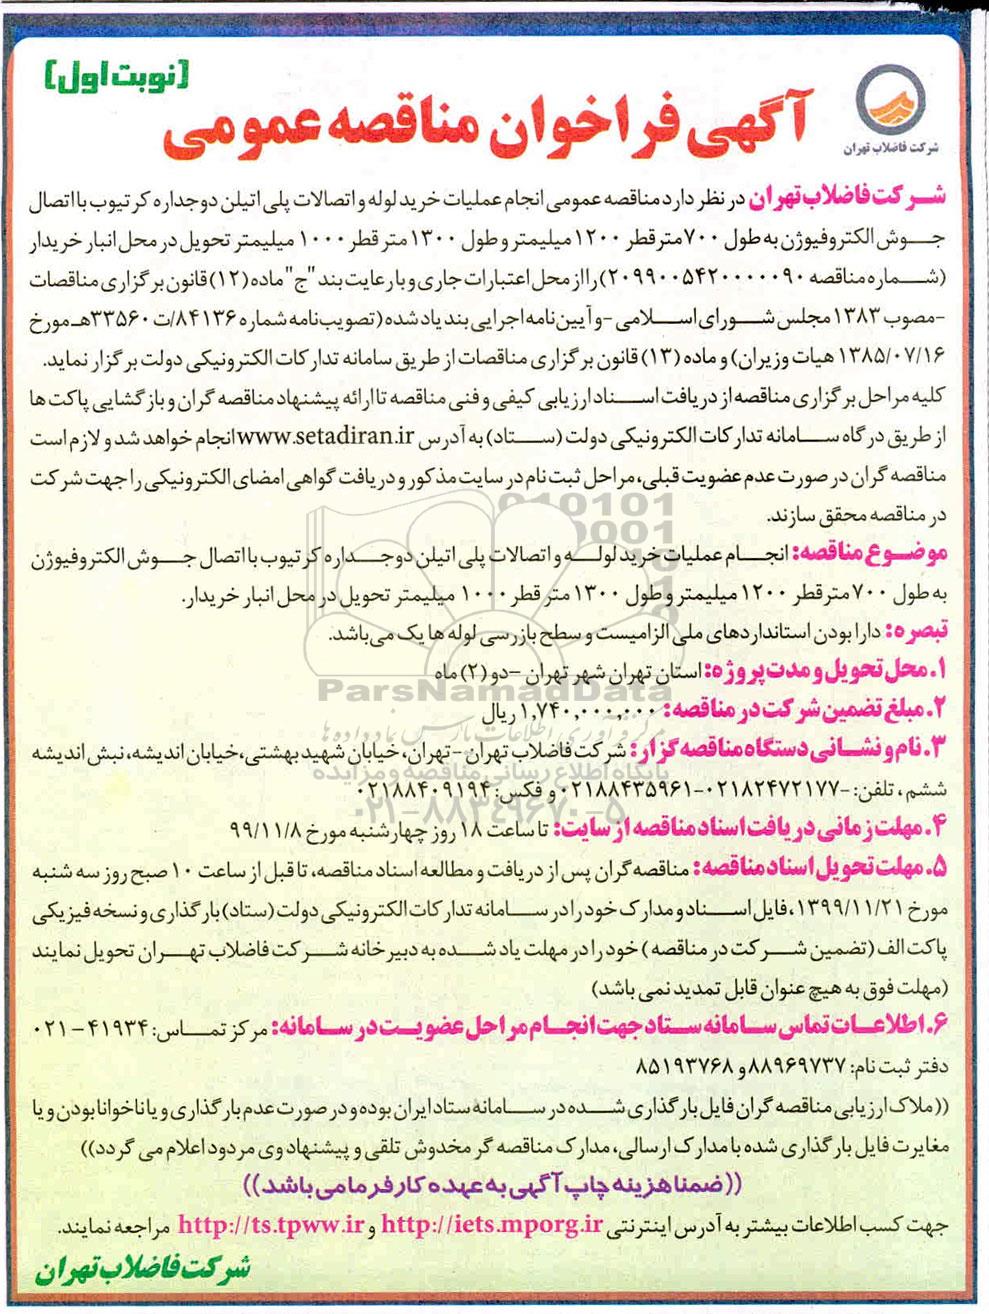 (نوبت اول)
شرکت فاضلاب تهران
آگهی فراخوان مناقصه عمومی
شرکت فاضلاب تهران در نظر دارد مناقصه عمومی انجام عملیات خرید لوله و اتصالات پلی اتیلن دوجداره کرتیوب با اتصال
جوش الکتروفیوژن به طول ۷۰۰ متر قطر ۱۲۰۰ میلیمتر و طول ۱۳۰۰ متر قطر ۱۰۰۰ میلیمتر تحویل در محل انبار خریدار
(شماره مناقصه ۲۰۹۹۰۰۵۴۲۰۰۰۰۰۹۰) را از محل اعتبارات جاری و با رعایت بند "ج" ماده (۱۲) قانون برگزاری مناقصات
-مصوب ۱۳۸۳ مجلس شورای اسلامی -و آیین نامه اجرایی بند یاد شده (تصویب نامه شماره ۸۴۱۳۶/ت ۳۳۵۶۰هـ مورخ
۱۳۸۵/۰۷/۱۶ هیات وزیران) و ماده (۱۳) قانون برگزاری مناقصات از طریق سامانه تدارکات الکترونیکی دولت برگزار نماید.
کلیه مراحل برگزاری مناقصه از دریافت اسناد ارزیابی کیفی و فنی مناقصه تا ارائه پیشنهاد مناقصه گران و بازگشایی پاکت ها
از طریق درگاه سامانه تدارکات الکترونیکی دولت (ستاد) به آدرس www.setadiran.ir انجام خواهد شد و لازم است
مناقصه گران در صورت عدم عضویت قبلی، مراحل ثبت نام در سایت مذکور و دریافت گواهی امضای الکترونیکی را جهت شرکت
در مناقصه محقق سازند.
موضوع مناقصه: انجام عملیات خرید لوله و اتصالات پلی اتیلن دوجداره کرتیوب با اتصال جوش الکتروفیوژن
به طول ۷۰۰ متر قطر ۱۲۰۰ میلیمتر و طول ۱۳۰۰ متر قطر ۱۰۰۰ میلیمتر تحویل در محل انبار خریدار.
تبصره: دارا بودن استانداردهای ملی الزامیست و سطح بازرسی لوله ها یک می‌باشد.
۱. محل تحویل و مدت پروژه: استان تهران شهر تهران -دو (۲) ماه
ParsNamadData
۲. مبلغ تضمین شرکت در مناقصه: ۱,۷۴۰,۰۰۰,۰۰۰ ریال
مرکز فرآوری اطلاعات پارس نماد داده‌ها
۳. نام و نشانی دستگاه مناقصه گزار: شرکت فاضلاب تهران -تهران، خیابان شهید بهشتی، خیابان اندیشه، نبش اندیشه
پایگاه اطلاع رسانی مناقصه و مزایده
ششم، تلفن: ۰۲۱۸۲۴۷۲۱۷۷-۰۲۱۸۸۴۳۵۹۶۱ و فکس: ۰۲۱۸۸۴۰۹۱۹۴
۰۲۱-۸۸۳۴۹۶۷۰-۵
۴. مهلت زمانی دریافت اسناد مناقصه از سایت: تا ساعت ۱۸ روز چهارشنبه مورخ ۹۹/۱۱/۸
۵. مهلت تحویل اسناد مناقصه: مناقصه گران پس از دریافت و مطالعه اسناد مناقصه، تا قبل از ساعت ۱۰ صبح روز سه شنبه
مورخ ۱۳۹۹/۱۱/۲۱، فایل اسناد و مدارک خود را در سامانه تدارکات الکترونیکی دولت (ستاد) بارگذاری و نسخه فیزیکی
پاکت الف (تضمین شرکت در مناقصه) خود را در مهلت یاد شده به دبیرخانه شرکت فاضلاب تهران تحویل نمایند
(مهلت فوق به هیچ عنوان قابل تمدید نمی باشد)
۶. اطلاعات تماس سامانه ستاد جهت انجام مراحل عضویت در سامانه: مرکز تماس: ۴۱۹۳۴-۰۲۱
دفتر ثبت نام: ۸۸۹۶۹۷۳۷ و ۸۵۱۹۳۷۶۸
((ملاک ارزیابی مناقصه گران فایل بارگذاری شده در سامانه ستاد ایران بوده و در صورت عدم بارگذاری و یا ناخوانا بودن و یا
مغایرت فایل بارگذاری شده با مدارک ارسالی، مدارک مناقصه گر مخدوش تلقی و پیشنهاد وی مردود اعلام می گردد))
((ضمنا هزینه چاپ آگهی به عهده کارفرما می باشد))
جهت کسب اطلاعات بیشتر به آدرس اینترنتی http://iets.mporg.ir و http://ts.tpww.ir مراجعه نمایند.
شرکت فاضلاب تهران